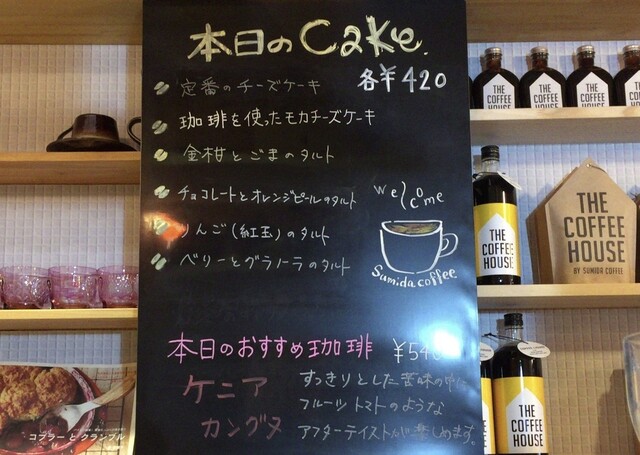 本日のCake.
各¥420
定番のチーズケーキ
珈琲を使ったモカチーズケーキ
金柑とごまのタルト
チョコレートとオレンジピールのタルト
りんご(紅玉)のタルト
ベリーとグラノーラのタルト
Welcome
Sumida coffee
本日のおすすめ珈琲
ケニア
カングヌ
すっきりとした苦味の中に
フルーツトマトのような
アフターテイストが楽しめます。
コブラーとクランブル
THE
COFFEE
HOUSE
THE
COFFEE
HOUSE
THE
COFFEE
HOUSE
THE
COFFEE
HOUSE
THE
COFFEE
HOUSE
THE
COFFEE
HOUSE
BY SUMIDA COFFEE
THE
COFFEE
HOUSE